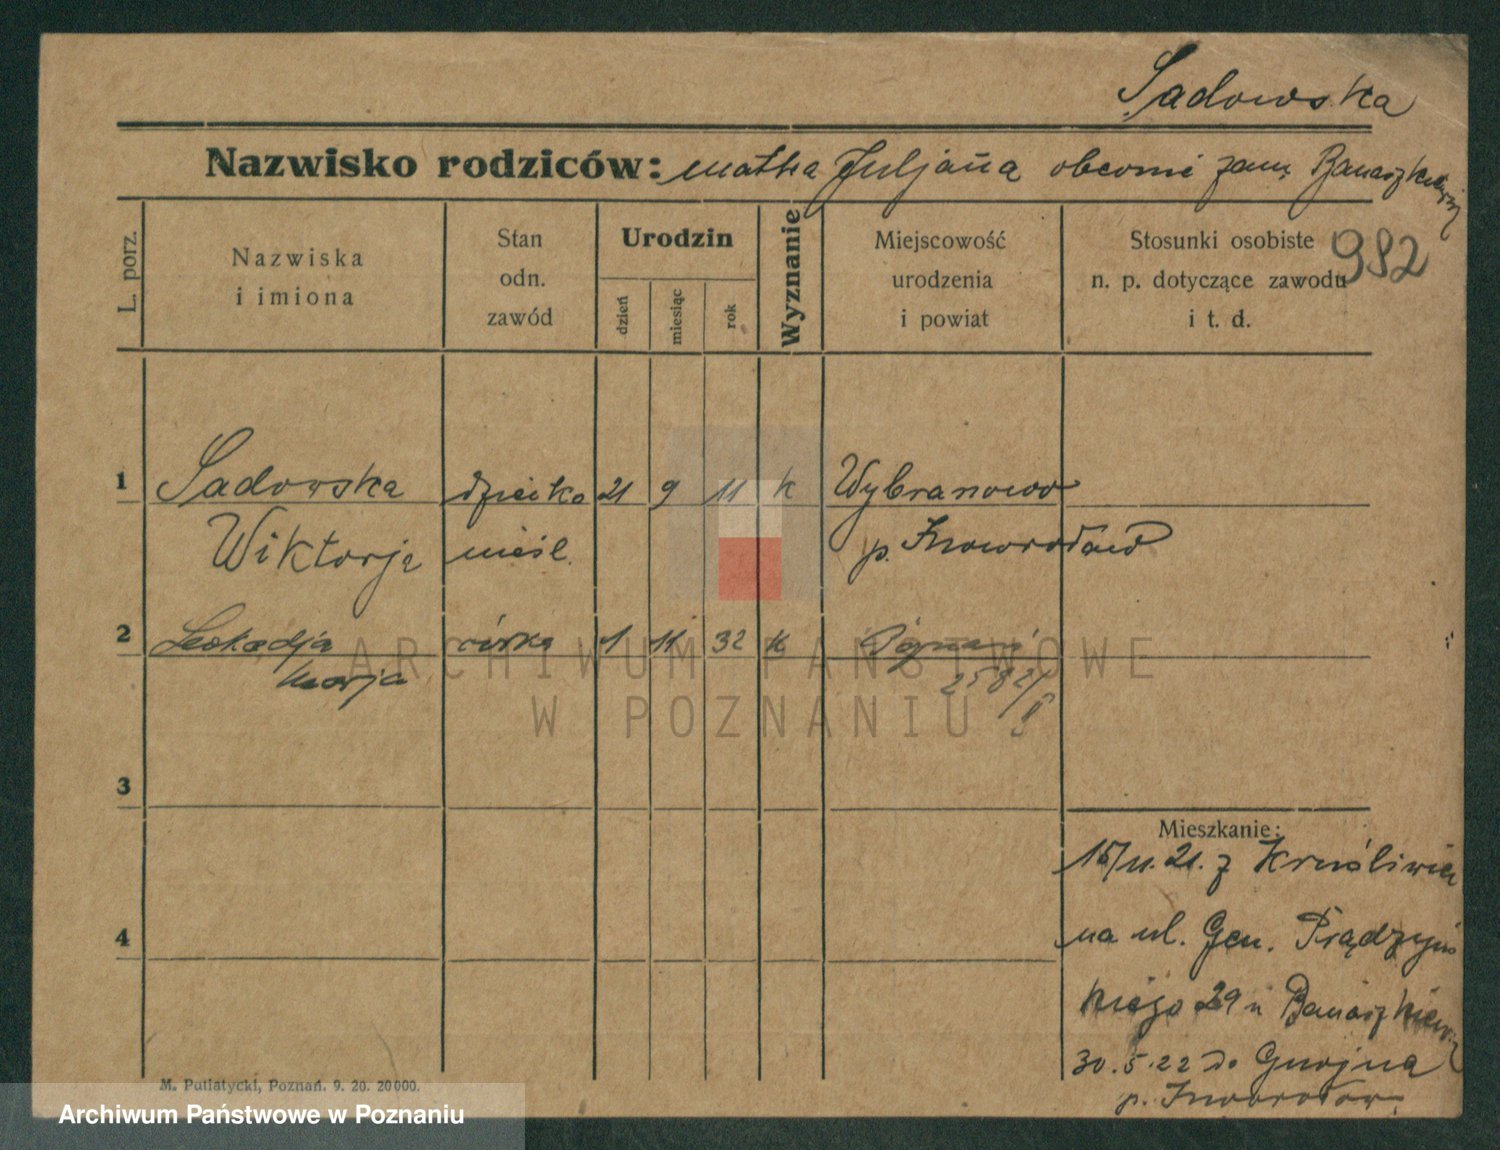 Sadowska
Nazwisko rodziców: matka Juljana obecnie zam. Banaszkiewicz
982
L. porz.
Nazwiska i imiona
Stan odn. zawód
Urodzin
dzień
miesiąc
rok
Wyznanie
Miejscowość urodzenia i powiat
Stosunki osobiste n. p. dotyczące zawodu i t. d.
1 Sadowska dziecko 21 9 11 k Wybranowo
Wiktorja nieśl. p. Inowrocław
2 Leokadja córka 1 11 32 k Poznań
Marja 2582/II
3
Mieszkanie:
15/11.21. z
4
na ul. Gen. Prądzyńs
kiego 29 u Banaszkiewicz
30.5.22 do Gnojna
p. Inowrocław
M. Putiatycki, Poznań. 9. 20. 20000.
ARCHIWUM PAŃSTWOWE
W POZNANIU
Archiwum Państwowe w Poznaniu